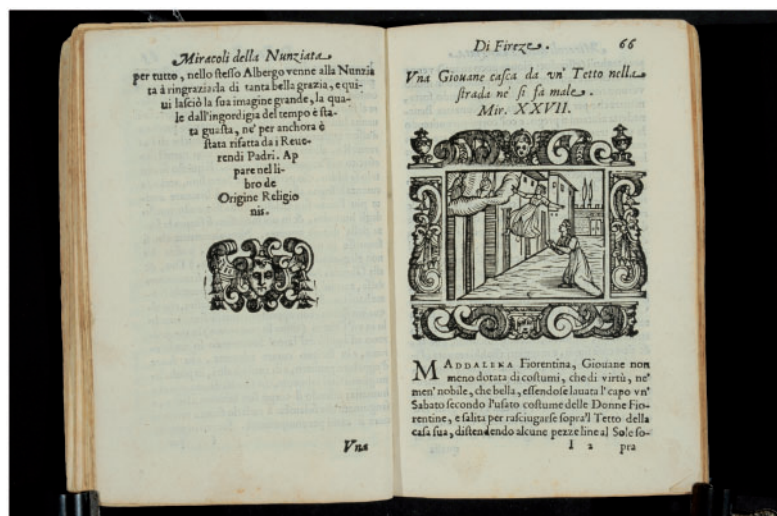 Miracoli della Nunziata
per tutto, nello stesso Albergo venne alla Nunzia
ta à ringraziarla di tanta bella grazia, e qui-
ui lasciò la sua imagine grande, la qua-
le dall'ingordigia del tempo è sta-
ta guasta, ne' per anchora è
stata rifatta da i Reue-
rendi Padri. Ap
pare nel li-
bro de
Origine Religio
nis.
Vna
Di Fireze. 66
Vna Giouane casca da vn' Tetto nella
strada ne' si fa male.
Mir. XXVII.
MADDALENA Fiorentina, Giouane non
meno dotata di costumi, che di virtù, ne'
men' nobile, che bella, essendose lauata l' capo vn'
Sabato secondo l'usato costume delle Donne Fio-
rentine, e salita per rasciugarse sopra'l Tetto della
casa sua, distendendo alcune pezze line al Sole so-
I 2 pra